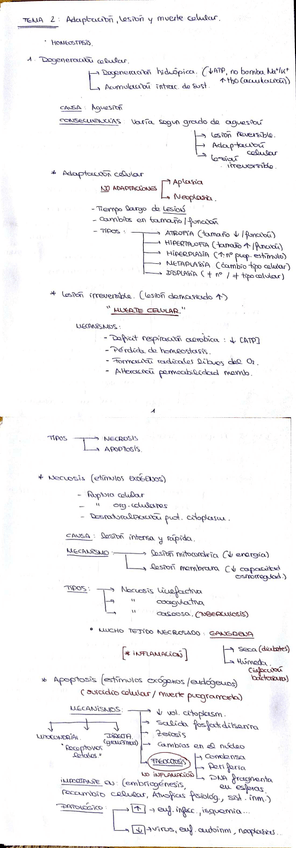 TEMA 2: Adaptación, lesión y muerte celular.
· HOMEOSTASIS.
1. Degeneración celular.
Degeneración hidrópica. (↓ATP, no bomba Na⁺/K⁺
↑H2O (acumulación)
Acumulación intrac. de sust.
CAUSA: Agresión
CONSECUENCIAS: Varía según grado de agresión
Lesión reversible.
Adaptación celular
Lesión irreversible.
* Adaptación celular
NO ADAPTACIONES
Aplasia
Neoplasia.
- Tiempo largo de lesión
- Cambios en tamaño/función
- TIPOS:
ATROFIA (tamaño ↓/función)
HIPERTROFIA (tamaño ↑/función)
HIPERPLASIA (↑nº prop. estímulo)
METAPLASIA (cambio tipo celular)
DISPLASIA (+ nº / + tipo celular)
* Lesión irreversible. (lesión demasiado ↑)
"MUERTE CELULAR."
MECANISMOS:
- Déficit respiración aeróbica: ↓[ATP]
- Pérdida de homeostasis.
- Formación radicales libres del O2.
- Alteración permeabilidad memb.
1
TIPOS
NECROSIS
APOPTOSIS.
* Necrosis (estímulos exógenos)
- Ruptura celular
- " org. celulares
- Desnaturalización prot. citoplasm.
CAUSA: lesión intensa y rápida.
MECANISMO
lesión mitocondria (↓ energía)
lesión membrana (↓ capacidad
osmorregul.)
TIPOS:
Necrosis licuefactiva
" coagulativa
" caseosa. (TUBERCULOSIS)
* MUCHO TEJIDO NECROSADO: GANGRENA
[* INFLAMACIÓN]
Seca (diabetes)
Húmeda. (infección
bacteriana)
* Apoptosis (estímulos exógenos/endógenos)
(suicidio celular / muerte programada)
MECANISMOS:
MITOCONDRIAL
"Receptores celulas"
DIRECTA (granzimas)
↓ vol. citoplasm.
Salida fosfatidilserina
Zeiosis
Cambios en el núcleo
PICNOSIS
Condensa
Periferia
DNA fragmenta
en esferas
NO INFLAMACIÓN
IMPORTANTE EN: (embriogénesis,
recambio celular, Atrofias fisiológ., sist. inm.)
PATOLÓGICO:
↑ → enf. infecc., isquemia...
↓ → virus, enf. autoinm, neoplasias...